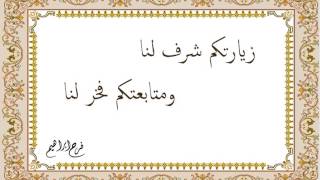 زيارتكم شرف لنا
ومتابعتكم فخر لنا
فرح إبراهيم